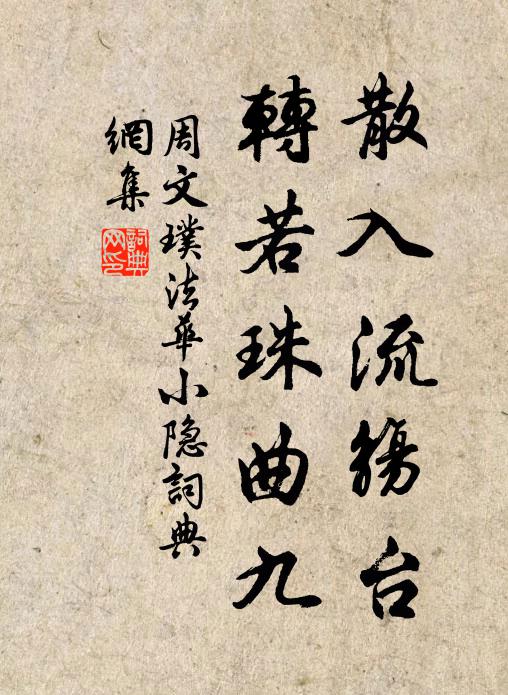 散入流觴台
轉若珠曲九
周文璞法華小隐詞典
網集
詞典
网印